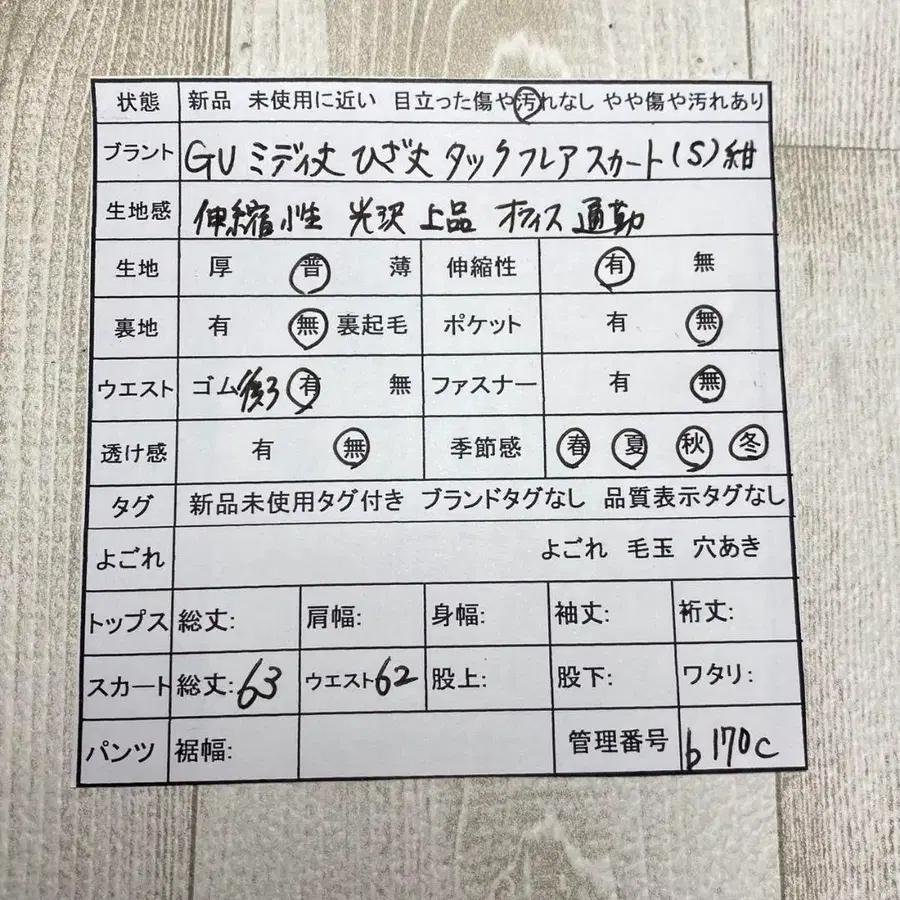 状態 新品 未使用に近い 目立った傷や汚れなし やや傷や汚れあり
ブランド GU ミディ丈 ひざ丈 タックフレアスカート (S) 紺
生地感 伸縮性 光沢 上品 オフィス 通勤
生地 厚 普 薄 伸縮性 有 無
裏地 有 無 裏起毛 ポケット 有 無
ウエスト ゴム 後ろ 有 無 ファスナー 有 無
透け感 有 無 季節感 春 夏 秋 冬
タグ 新品未使用タグ付き ブランドタグなし 品質表示タグなし
よごれ よごれ 毛玉 穴あき
トップス 総丈: 肩幅: 身幅: 袖丈: 裄丈:
スカート 総丈: 63 ウエスト 62 股上: 股下: ワタリ:
パンツ 裾幅: 管理番号 b170c